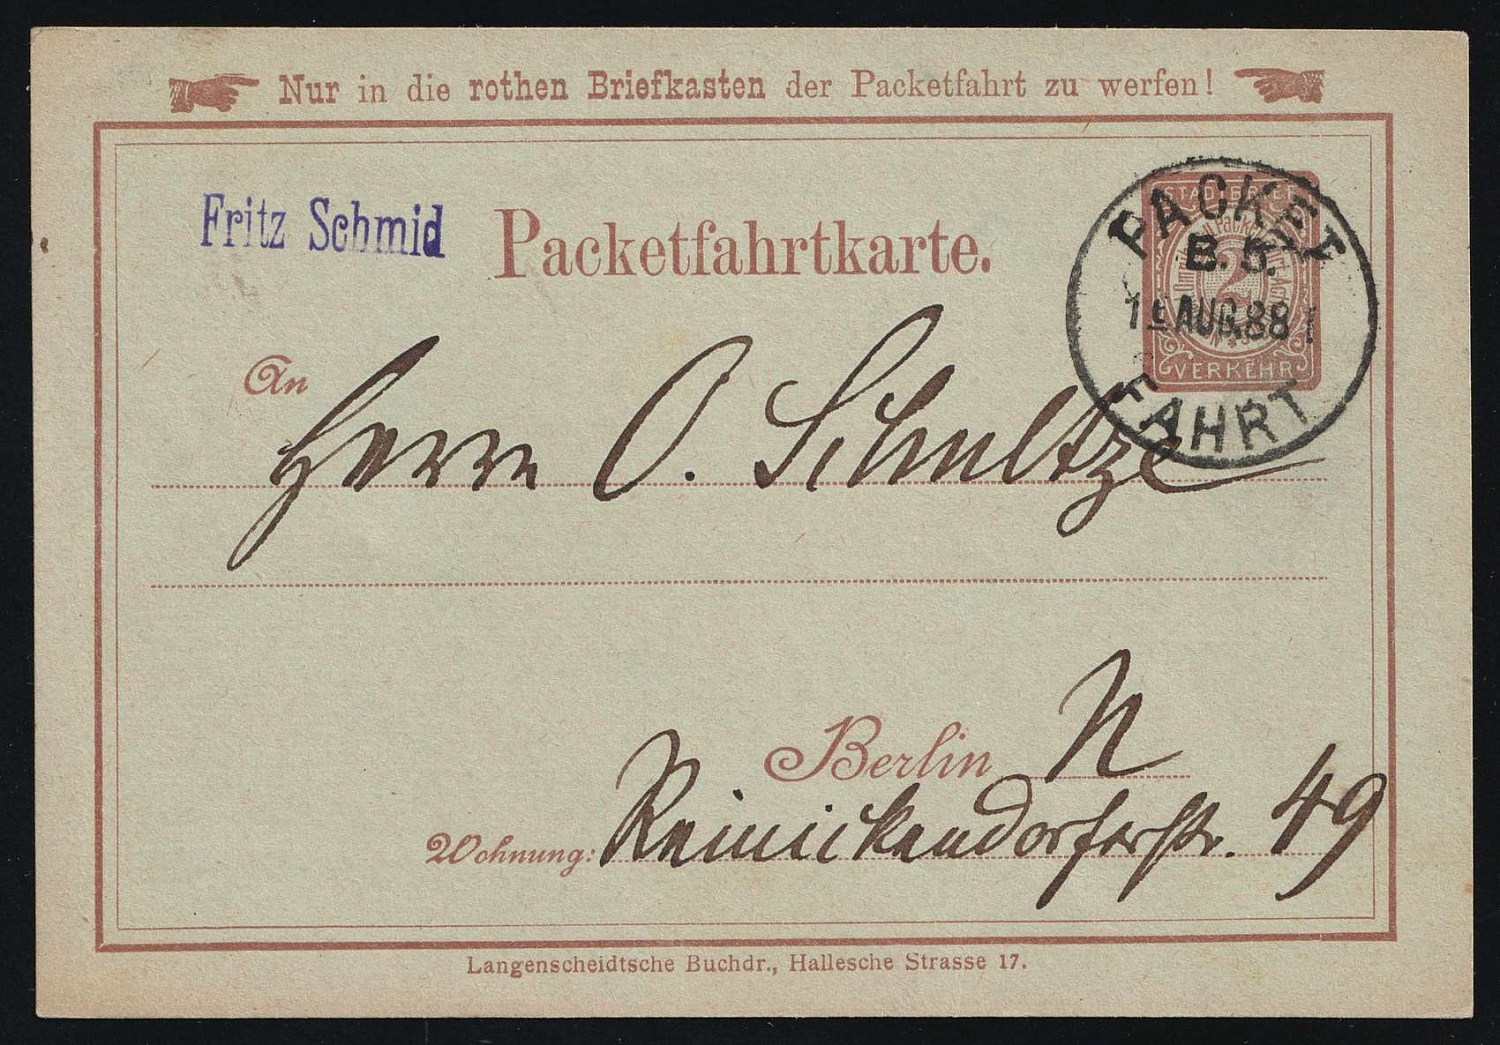 Nur in die rothen Briefkasten der Packetfahrt zu werfen!
Fritz Schmid
Packetfahrtkarte.
STADTBRIEF
2
VERKEHR
PACKET
B. 5.
AUG. 88
FAHRT
An
Herrn O. Schultze
Berlin N
Wohnung: Reinickendorferstr. 49
Langenscheidtsche Buchdr., Hallesche Strasse 17.